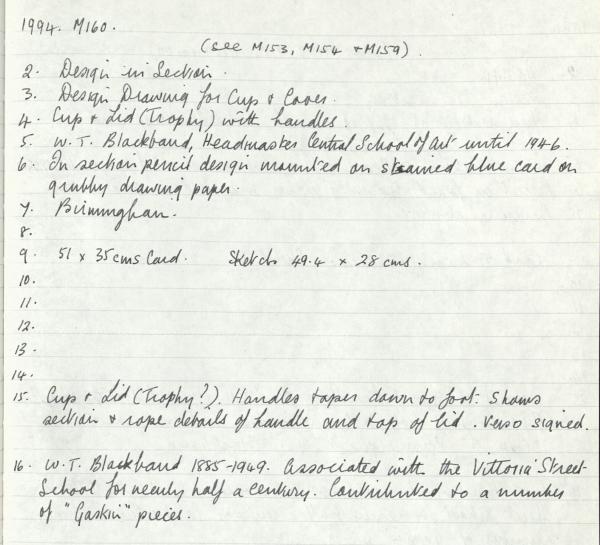 1994. M160.
(see M153, M154 + M159).
2. Design in Section.
3. Design Drawing for Cup & Cover.
4. Cup & Lid (Trophy) with handles.
5. W. T. Blackband, Headmaster Central School of Art until 1946.
6. In section pencil design mounted on stained blue card on
grubby drawing paper.
7. Birmingham.
8.
9. 51 x 35 cms Card. Sketch 49.4 x 28 cms.
10.
11.
12.
13.
14.
15. Cup & Lid (Trophy?). Handles taper down to foot. Shows
section & rope details of handle and top of lid. Verso signed.
16. W. T. Blackband 1885-1949. Associated with the Vittoria Street
School for nearly half a century. Contributed to a number
of "Gaskin" pieces.